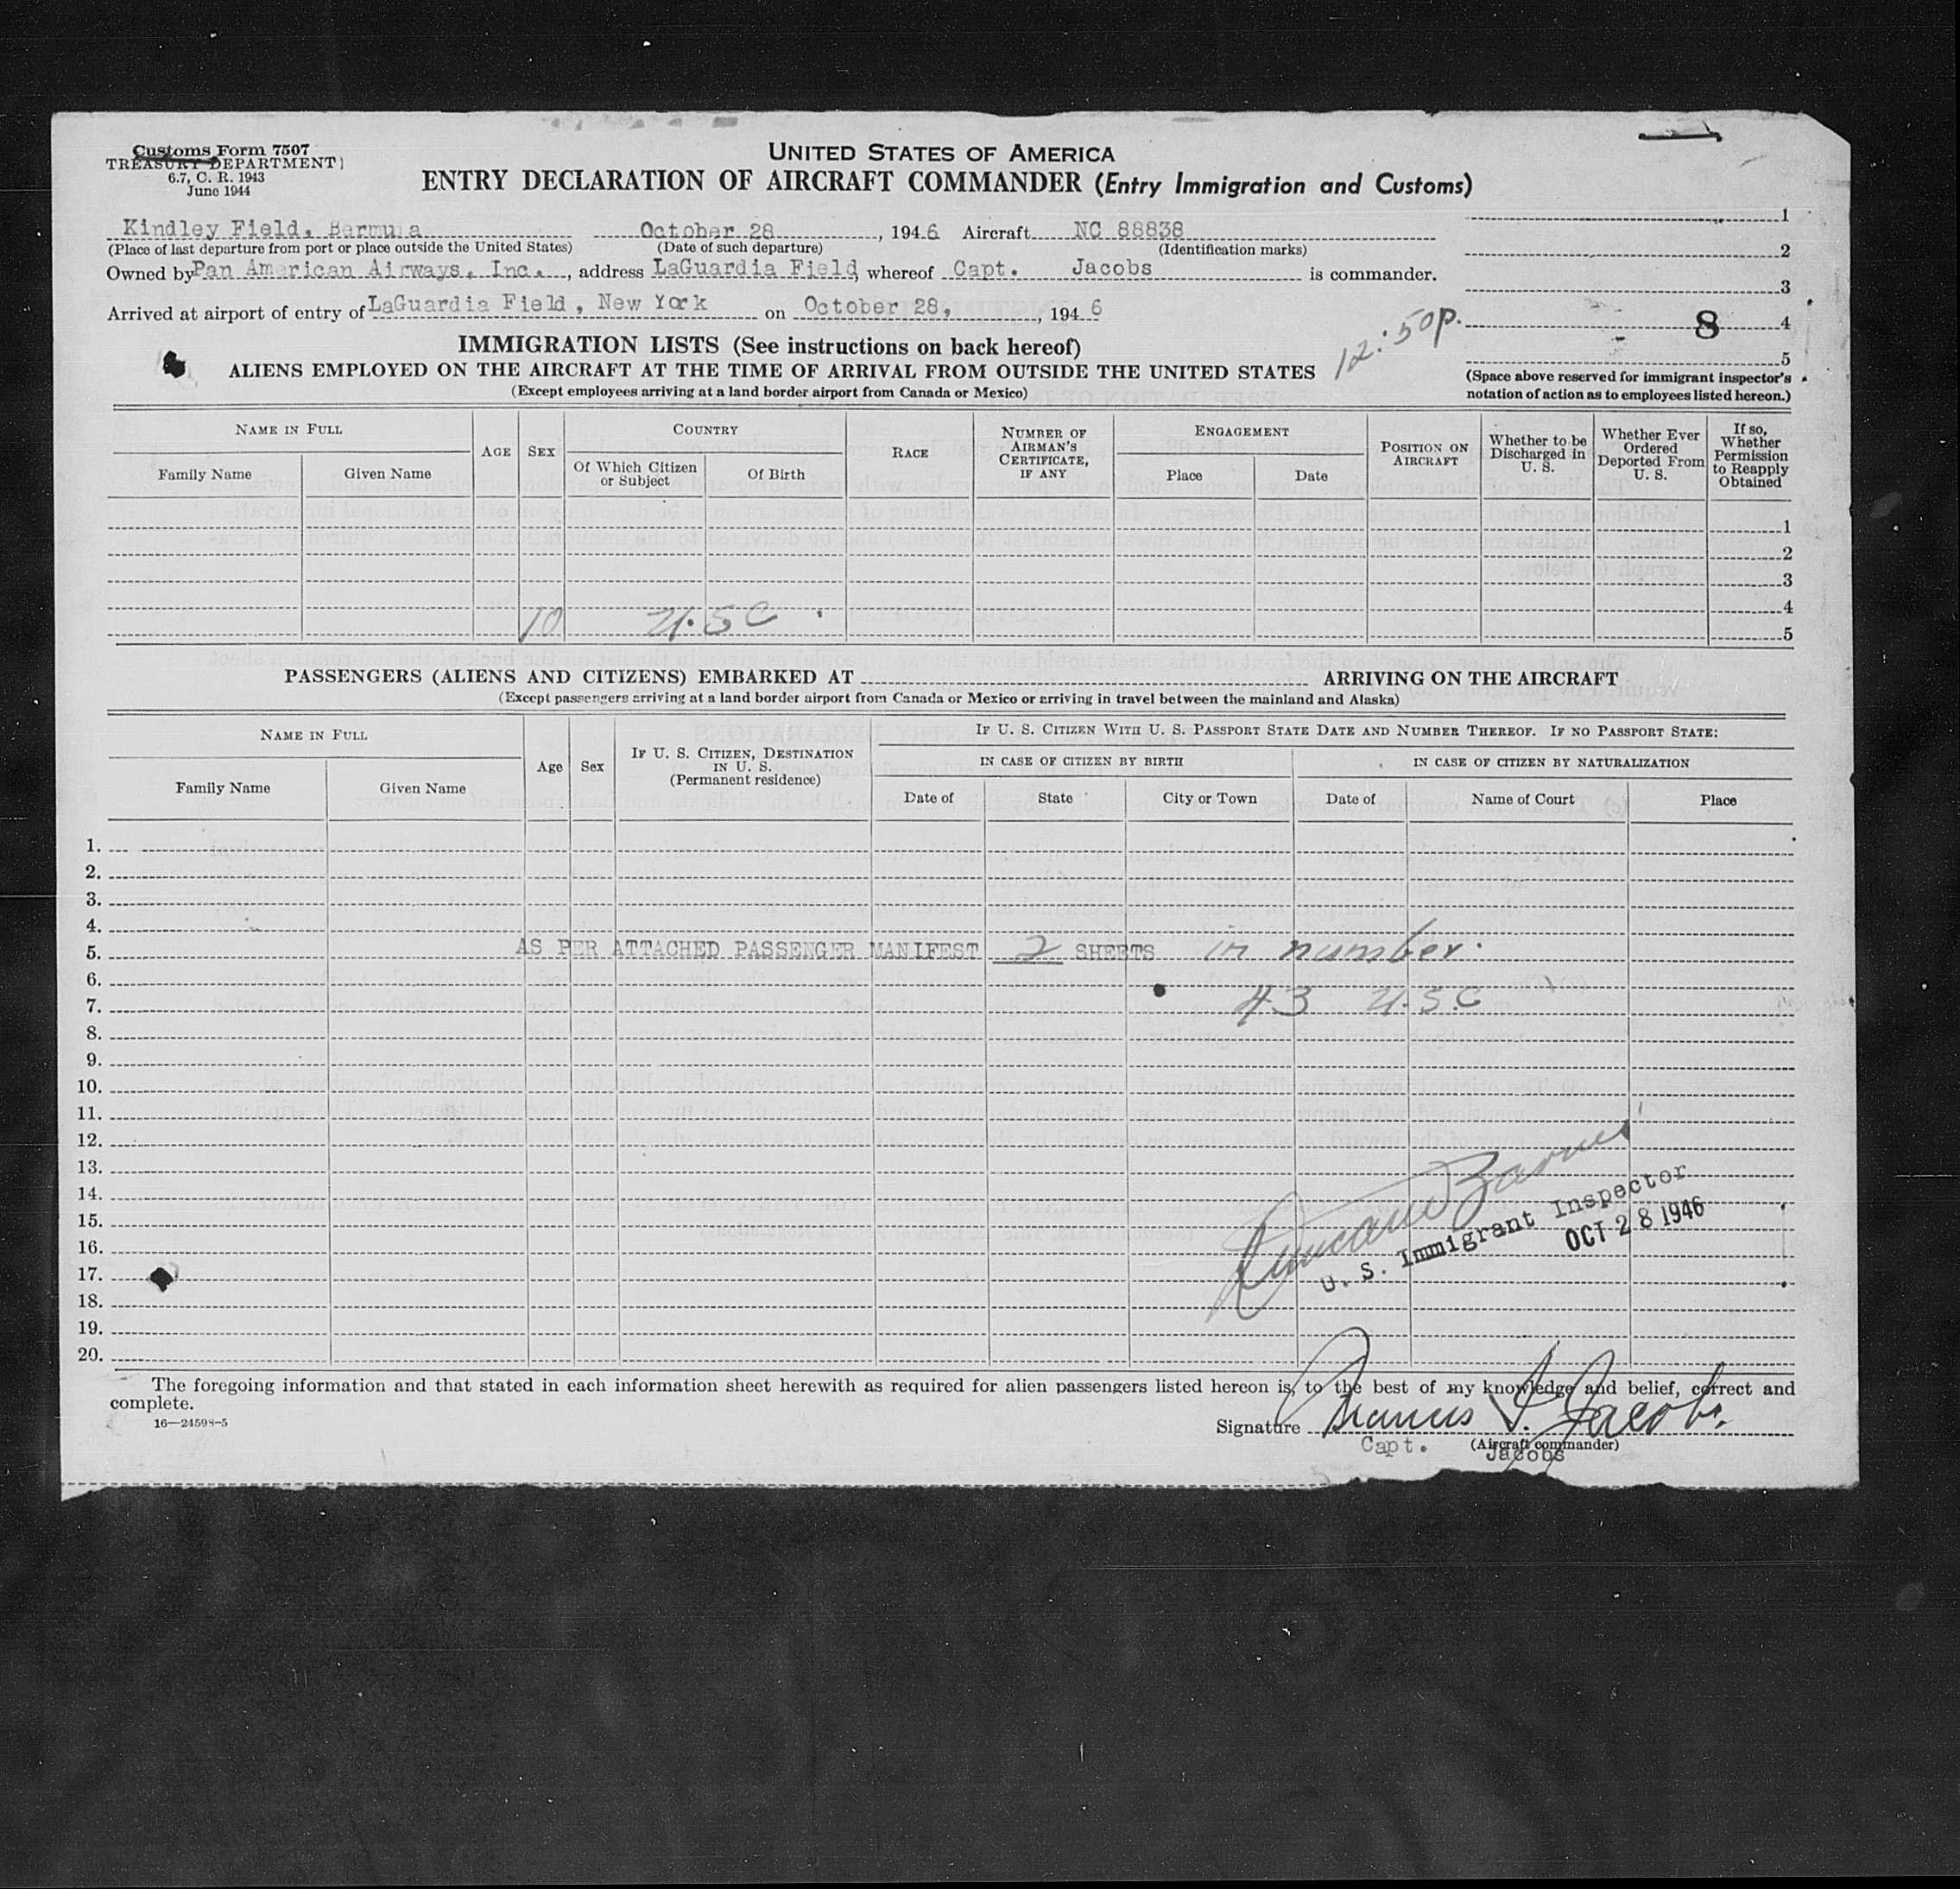 Customs Form 7507
TREASURY DEPARTMENT
6.7, C. R. 1943
June 1944
UNITED STATES OF AMERICA
ENTRY DECLARATION OF AIRCRAFT COMMANDER (Entry Immigration and Customs)
Kindley Field, Bermuda October 28, 1946 Aircraft NC 88838
(Place of last departure from port or place outside the United States) (Date of such departure) (Identification marks)
Owned by Pan American Airways, Inc., address LaGuardia Field, whereof Capt. Jacobs is commander.
Arrived at airport of entry of LaGuardia Field, New York on October 28, 1946
12:50p.
1
2
3
8 4
5
(Space above reserved for immigrant inspector's notation of action as to employees listed hereon.)
IMMIGRATION LISTS (See instructions on back hereof)
ALIENS EMPLOYED ON THE AIRCRAFT AT THE TIME OF ARRIVAL FROM OUTSIDE THE UNITED STATES
(Except employees arriving at a land border airport from Canada or Mexico)
NAME IN FULL
Family Name Given Name
AGE SEX
COUNTRY
Of Which Citizen or Subject Of Birth
RACE
NUMBER OF AIRMAN'S CERTIFICATE, IF ANY
ENGAGEMENT
Place Date
POSITION ON AIRCRAFT
Whether to be Discharged in U. S.
Whether Ever Ordered Deported From U. S.
If so, Whether Permission to Reapply Obtained
1
2
3
4
10 U.S C 5
PASSENGERS (ALIENS AND CITIZENS) EMBARKED AT ARRIVING ON THE AIRCRAFT
(Except passengers arriving at a land border airport from Canada or Mexico or arriving in travel between the mainland and Alaska)
NAME IN FULL
Family Name Given Name
Age Sex
IF U. S. CITIZEN, DESTINATION IN U. S. (Permanent residence)
IF U. S. CITIZEN WITH U. S. PASSPORT STATE DATE AND NUMBER THEREOF. IF NO PASSPORT STATE:
IN CASE OF CITIZEN BY BIRTH IN CASE OF CITIZEN BY NATURALIZATION
Date of State City or Town Date of Name of Court Place
1.
2.
3.
4.
5. AS PER ATTACHED PASSENGER MANIFEST 2 SHEETS in number.
6.
7. 43 U.S.C
8.
9.
10.
11.
12.
13.
14.
15.
16.
17.
18.
19.
20.
U. S. Immigrant Inspector
OCT 28 1946
The foregoing information and that stated in each information sheet herewith as required for alien passengers listed hereon is, to the best of my knowledge and belief, correct and
complete.
16—24598-5
Signature Francis J. Jacobs.
Capt. (Aircraft commander)
Jacobs